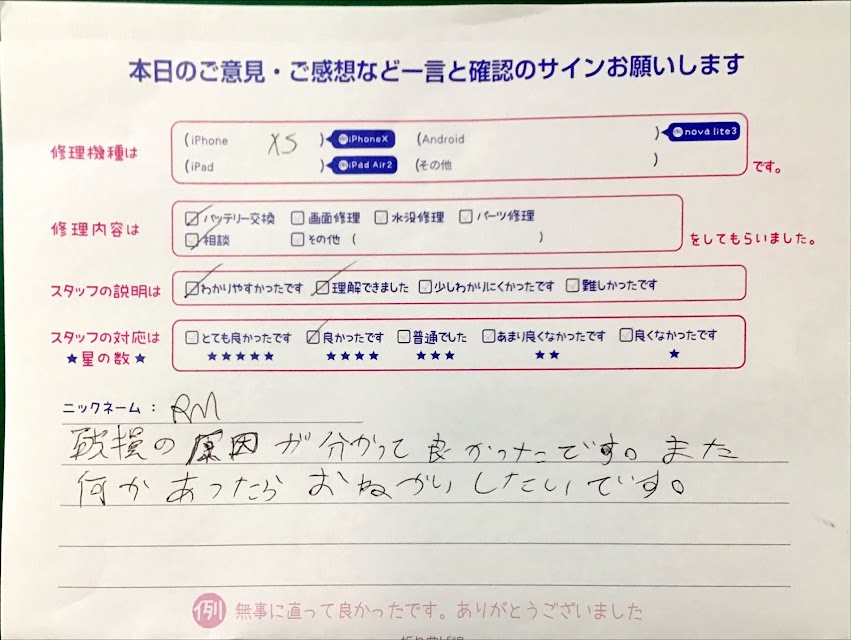 本日のご意見・ご感想など一言と確認のサインお願いします
修理機種は (iPhone XS ) iPhoneX (Android ) nova lite3
(iPad ) iPad Air2 (その他 ) です。
修理内容は ☑バッテリー交換 □画面修理 □水没修理 □パーツ修理
☑相談 □その他 ( ) をしてもらいました。
スタッフの説明は ☑わかりやすかったです ☑理解できました □少しわかりにくかったです □難しかったです
スタッフの対応は □とても良かったです ☑良かったです □普通でした □あまり良くなかったです □良くなかったです
★星の数★ ★★★★★ ★★★★ ★★★ ★★ ★
ニックネーム： RM
の原因が分かって良かったです。また
何かあったらおねがいしたいです。
例 無事に直って良かったです。ありがとうございました